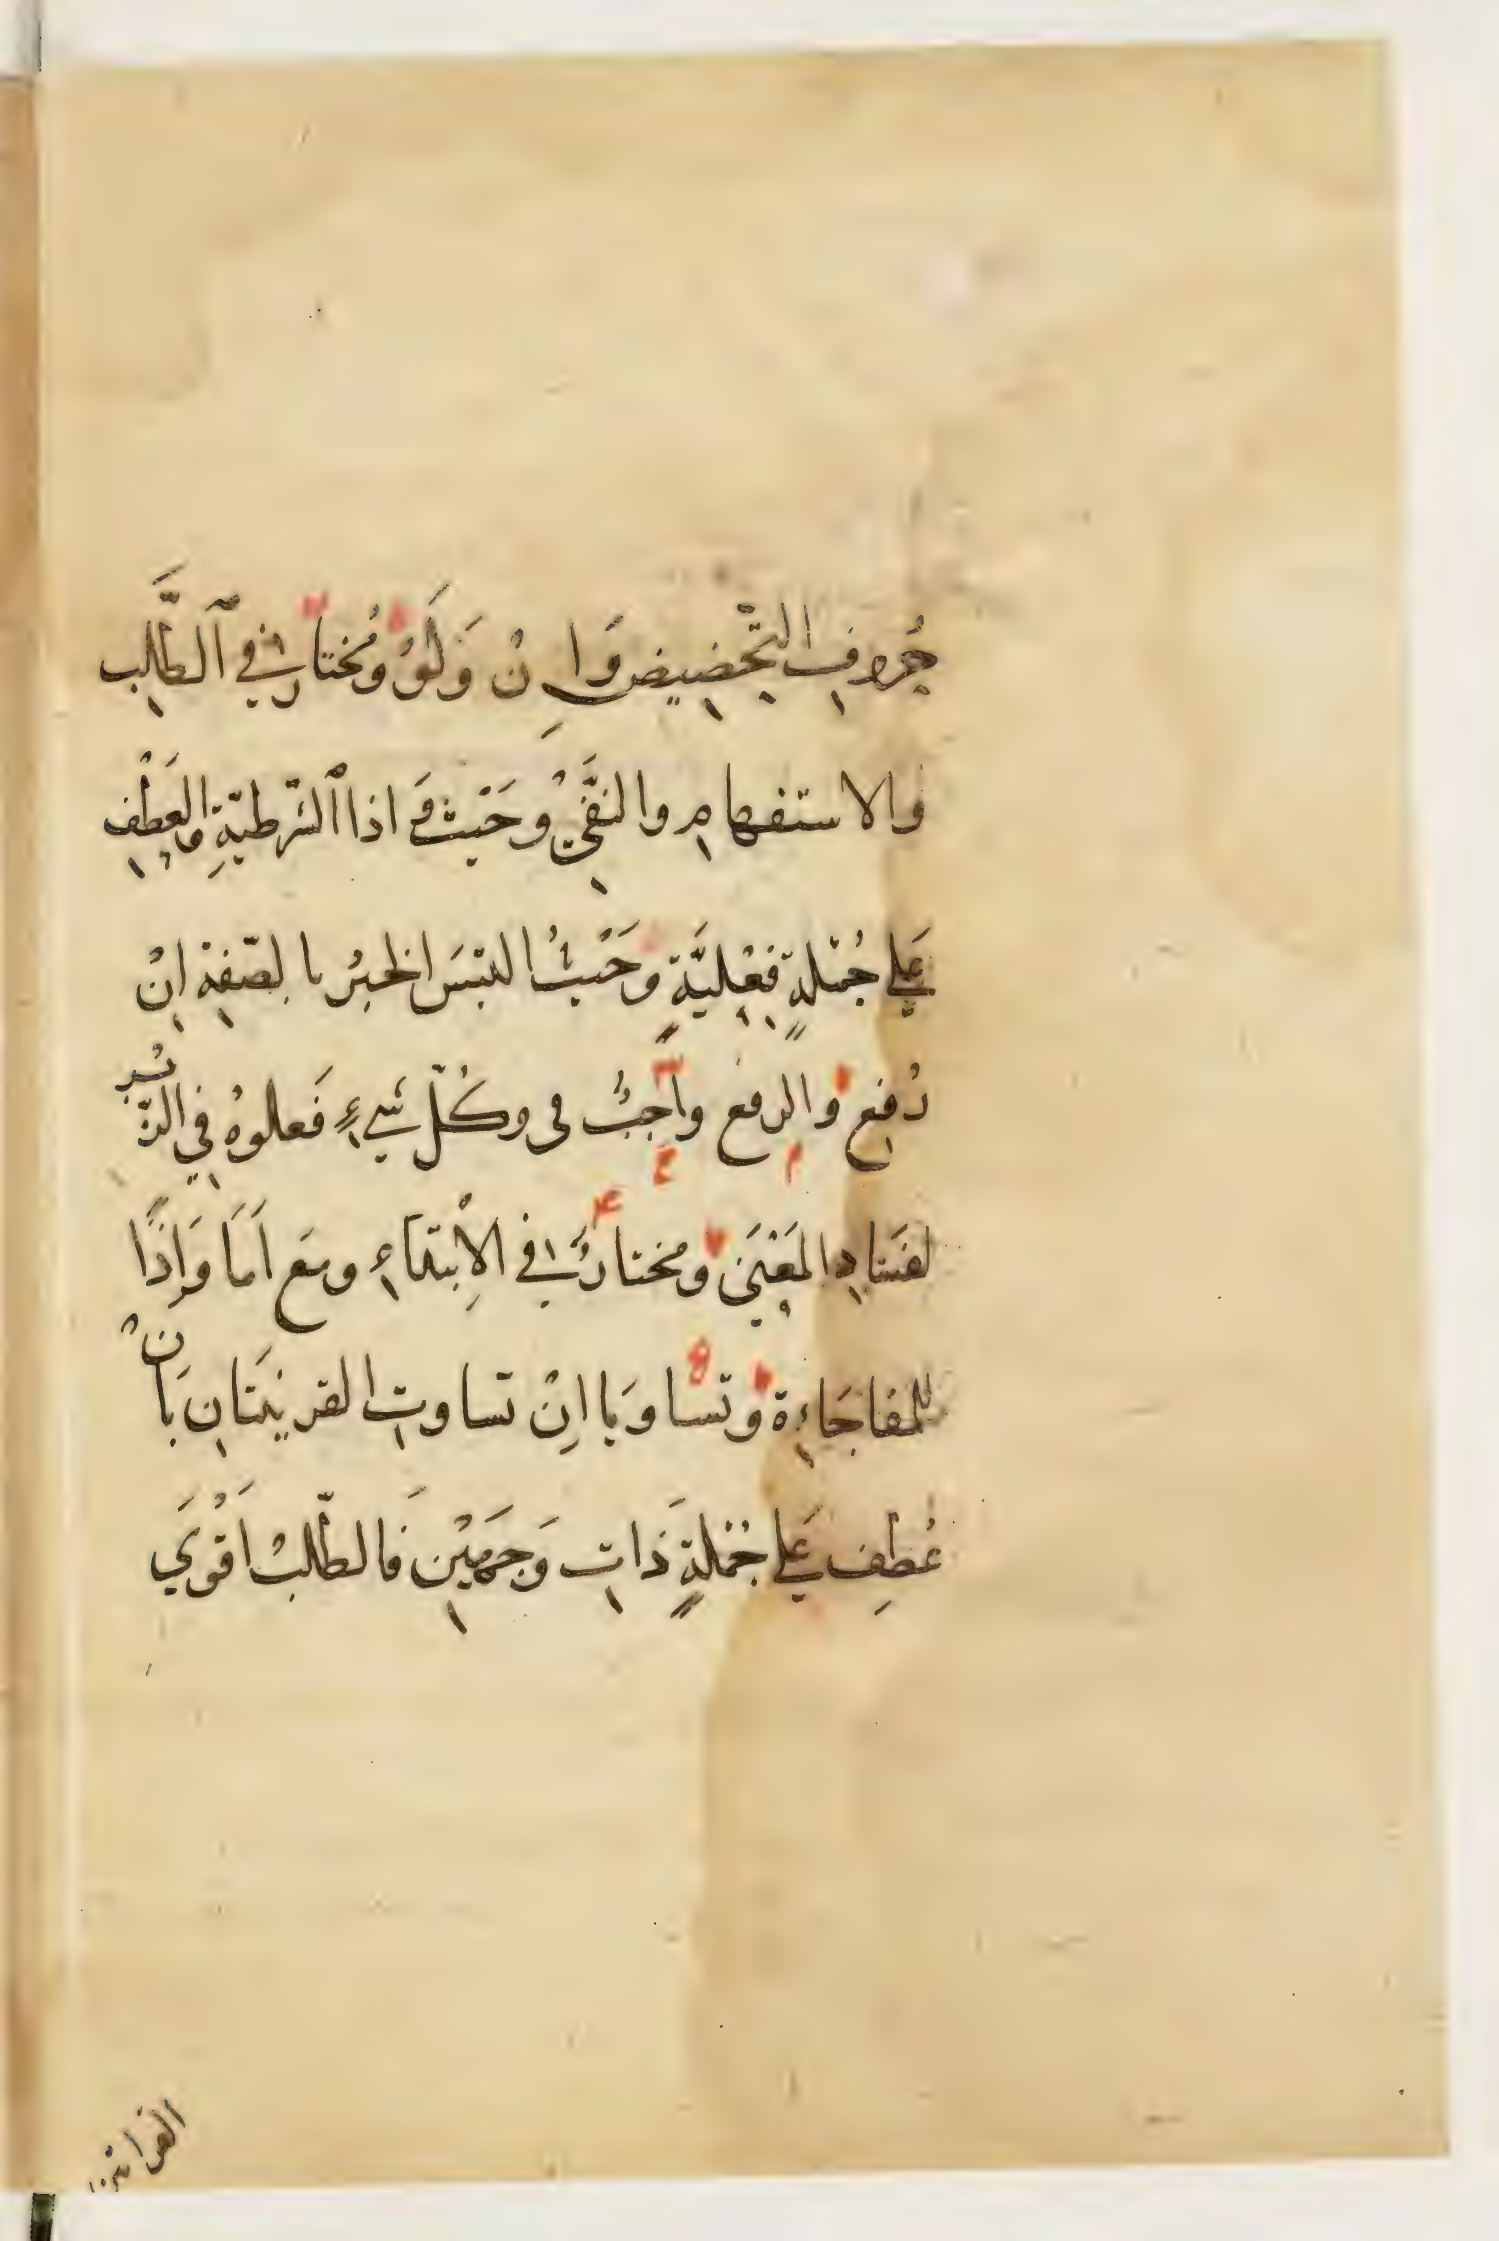 حُروفِ التّحضيضِ وَاِنْ وَلَوْ وَمُختارٌ في الطَّلَبِ
والاستفهامِ والنَّفْيِ وَحَيْثُ وَاذا الشّرطيّةِ والعَطْفِ
عَلي جُمْلةٍ فِعْليَّةٍ وَحَيْثُ التبَسَ الخبرُ بالصّفةِ اِنْ
رُفِع والرفع واجبٌ في وكُلّ شيءٍ فَعلوهُ في الزّبُرِ
لفسَادِ المَعْنَي ومختارٌ في الاِبْتداءِ ومَع اَمَا وَاِذَا
للمفاجَاءِة وتساويا اِنْ تساوتِ القرينَتانِ بَاَنْ
عُطِفَ عَلي جُمْلةٍ ذاتِ وَجهَيْنِ فَالطّلبُ اَقْوَي
القرائن